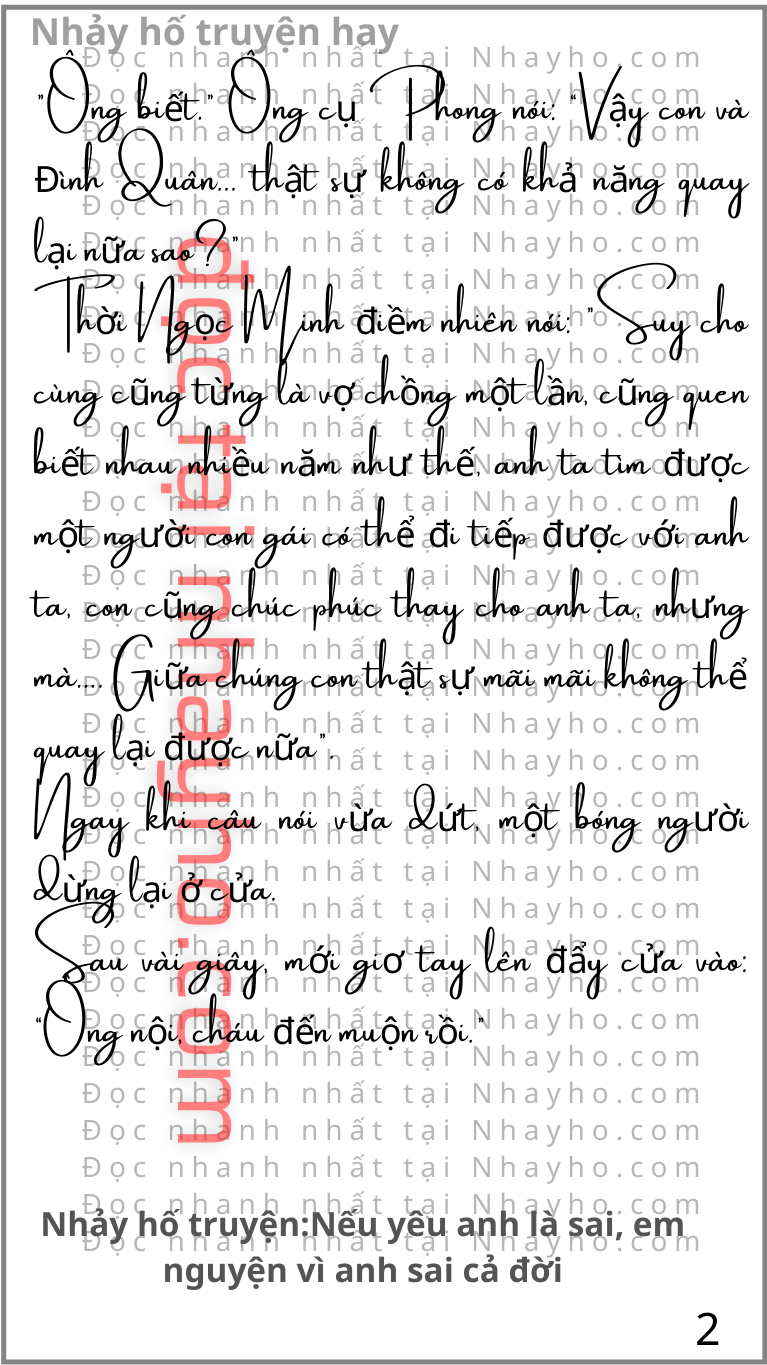 Nhảy hố truyện hay
"Ông biết." Ông cụ Phong nói: "Vậy con và
Đình Quân... thật sự không có khả năng quay
lại nữa sao?"
Thời Ngọc Minh điềm nhiên nói: "Suy cho
cùng cũng từng là vợ chồng một lần, cũng quen
biết nhau nhiều năm như thế, anh ta tìm được
một người con gái có thể đi tiếp được với anh
ta, con cũng chúc phúc thay cho anh ta, nhưng
mà.... Giữa chúng con thật sự mãi mãi không thể
quay lại được nữa".
Ngay khi câu nói vừa dứt, một bóng người
dừng lại ở cửa.
Sau vài giây, mới giơ tay lên đẩy cửa vào:
"Ông nội, cháu đến muộn rồi."
đọc tại nhayho.com
Đọc nhanh nhất tại Nhayho.com
Đọc nhanh nhất tại Nhayho.com
Đọc nhanh nhất tại Nhayho.com
Nhảy hố truyện:Nếu yêu anh là sai, em
nguyện vì anh sai cả đời
2